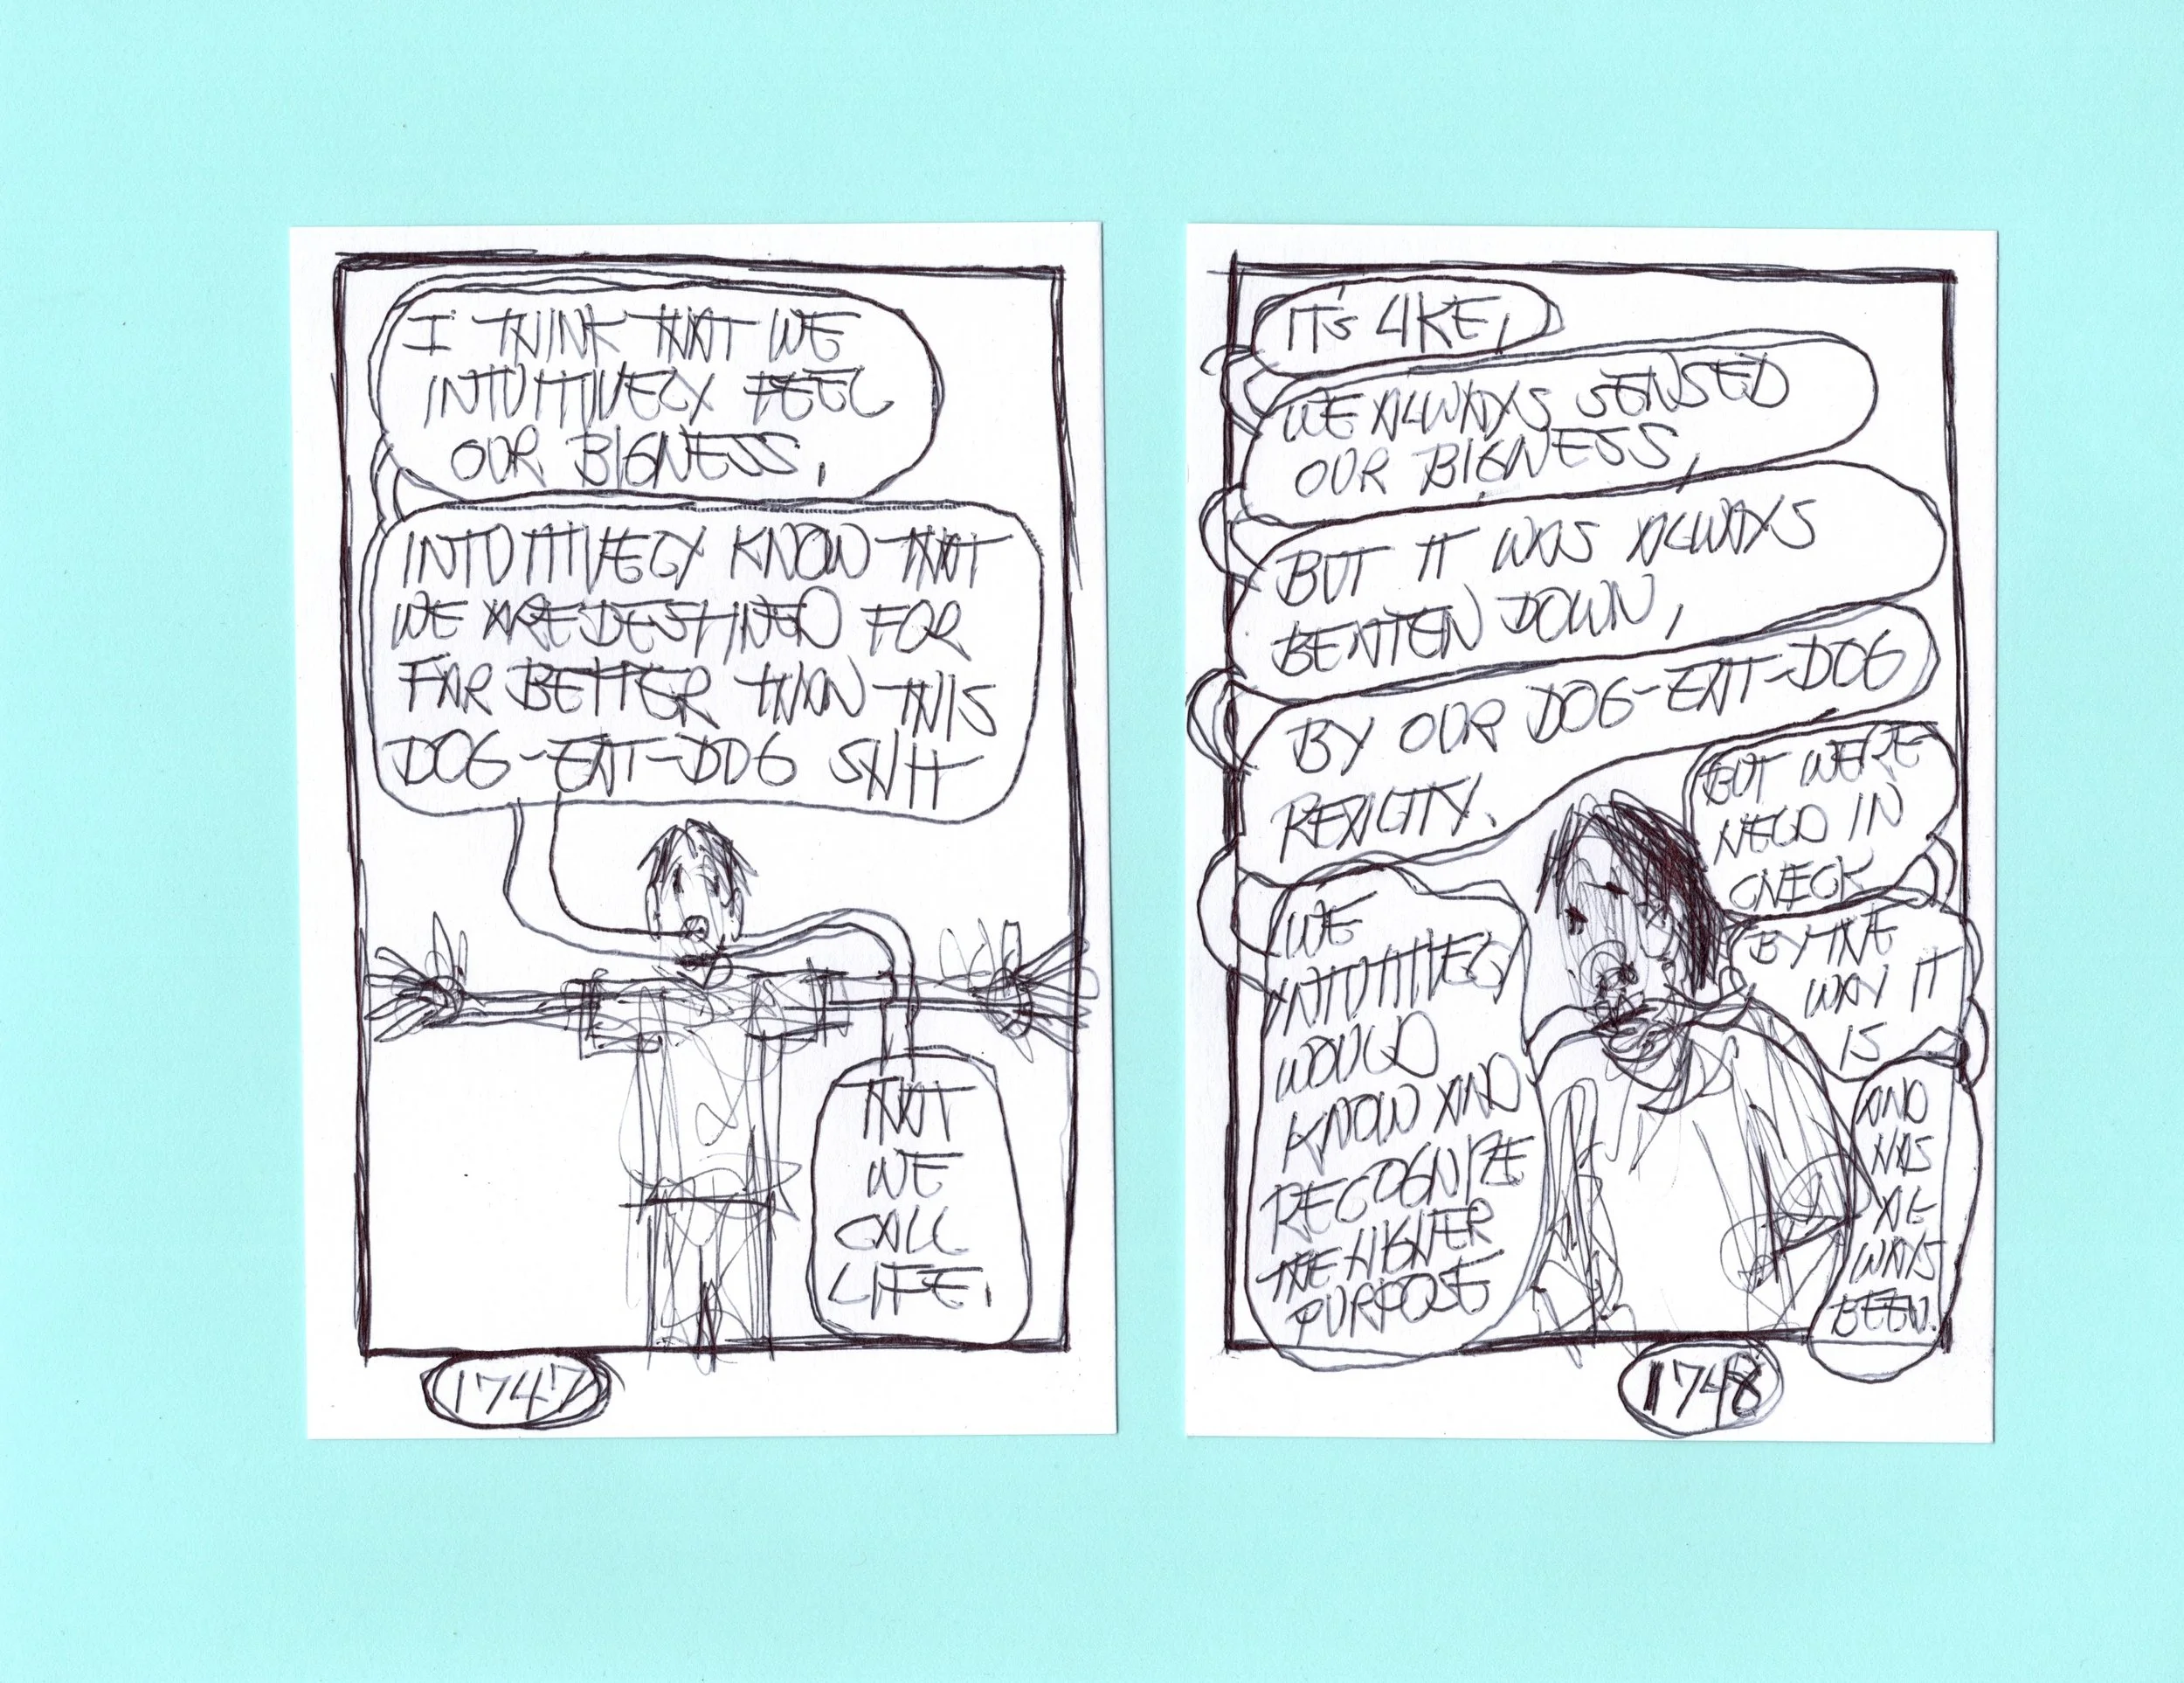 I THINK THAT WE
INTUITIVELY FEEL
OUR BIGNESS,
INTUITIVELY KNOW THAT
WE ARE DESTINED FOR
FAR BETTER THAN THIS
DOG-EAT-DOG SHIT
THAT
WE
CALL
LIFE.
1747
IT'S LIKE,
WE ALWAYS SENSED
OUR BIGNESS,
BUT IT WAS ALWAYS
BEATEN DOWN,
BY OUR DOG-EAT-DOG
REALITY.
WE
INTUITIVELY
WOULD
KNOW AND
RECOGNIZE
THE HIGHER
PURPOSE
BUT WE'RE
HELD IN
CHECK
BY THE
WAY IT
IS
AND
HAS
AL-
WAYS
BEEN.
1748